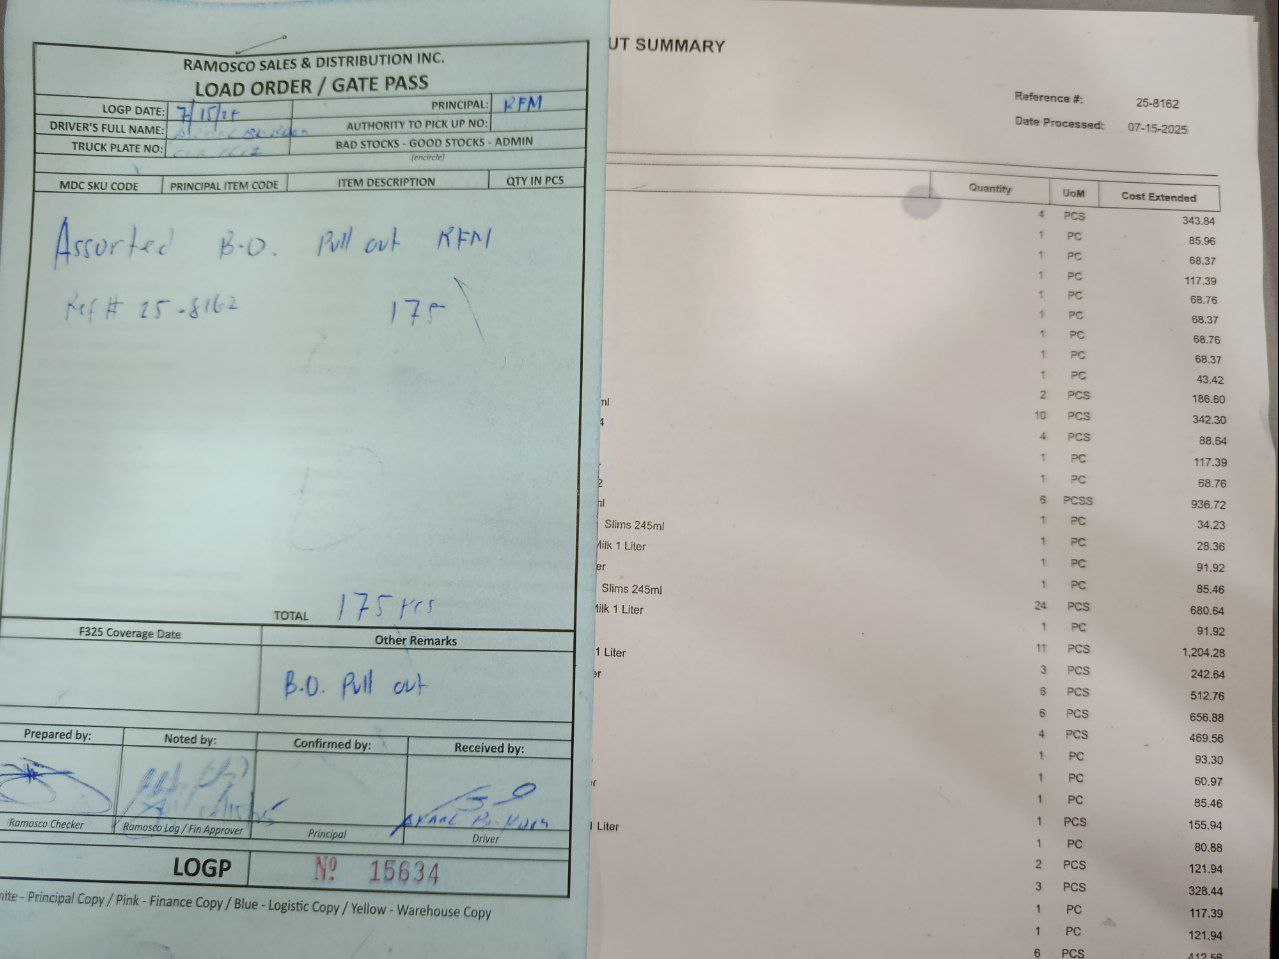 RAMOSCO SALES & DISTRIBUTION INC.
LOAD ORDER / GATE PASS
LOGP DATE: 7/15/25 PRINCIPAL: RFM
DRIVER'S FULL NAME: AUTHORITY TO PICK UP NO:
TRUCK PLATE NO: BAD STOCKS - GOOD STOCKS - ADMIN
(encircle)
MDC SKU CODE PRINCIPAL ITEM CODE ITEM DESCRIPTION QTY IN PCS
Assorted B.O. Pull out RFM
Ref # 25-8162 175
TOTAL 175 PCS
F325 Coverage Date Other Remarks
B.O. Pull out
Prepared by: Noted by: Confirmed by: Received by:
Ramosco Checker Ramosco Log / Fin Approver Principal Driver
LOGP Nº 15634
- Principal Copy / Pink - Finance Copy / Blue - Logistic Copy / Yellow - Warehouse Copy
UT SUMMARY
Reference #: 25-8162
Date Processed: 07-15-2025
Quantity UoM Cost Extended
4 PCS 343.84
1 PC 85.96
1 PC 68.37
1 PC 117.39
1 PC 68.76
1 PC 68.37
1 PC 68.76
1 PC 68.37
1 PC 43.42
ml 2 PCS 186.60
4 10 PCS 342.30
4 PCS 88.64
1 PC 117.39
2 1 PC 68.76
ml 6 PCSS 936.72
Slims 245ml 1 PC 34.23
Milk 1 Liter 1 PC 28.36
er 1 PC 91.92
Slims 245ml 1 PC 85.46
Milk 1 Liter 24 PCS 680.64
1 PC 91.92
1 Liter 11 PCS 1,204.28
er 3 PCS 242.64
6 PCS 512.76
6 PCS 656.88
4 PCS 469.56
1 PC 93.30
1 PC 60.97
1 PC 85.46
1 Liter 1 PCS 155.94
1 PC 80.88
2 PCS 121.94
3 PCS 328.44
1 PC 117.39
1 PC 121.94
6 PCS 412.56